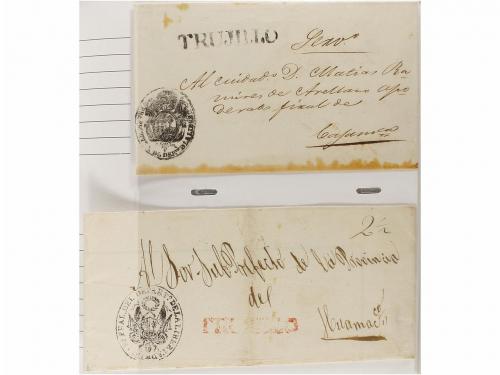 TRUJILLO
Servo
Al cuidado D. Matias Ra
mires de Arellano apo
derado fiscal de
Cajamca
2½
Al Sor Sub Prefecto de la Provincia
del
Huamaco
TRUJILLO